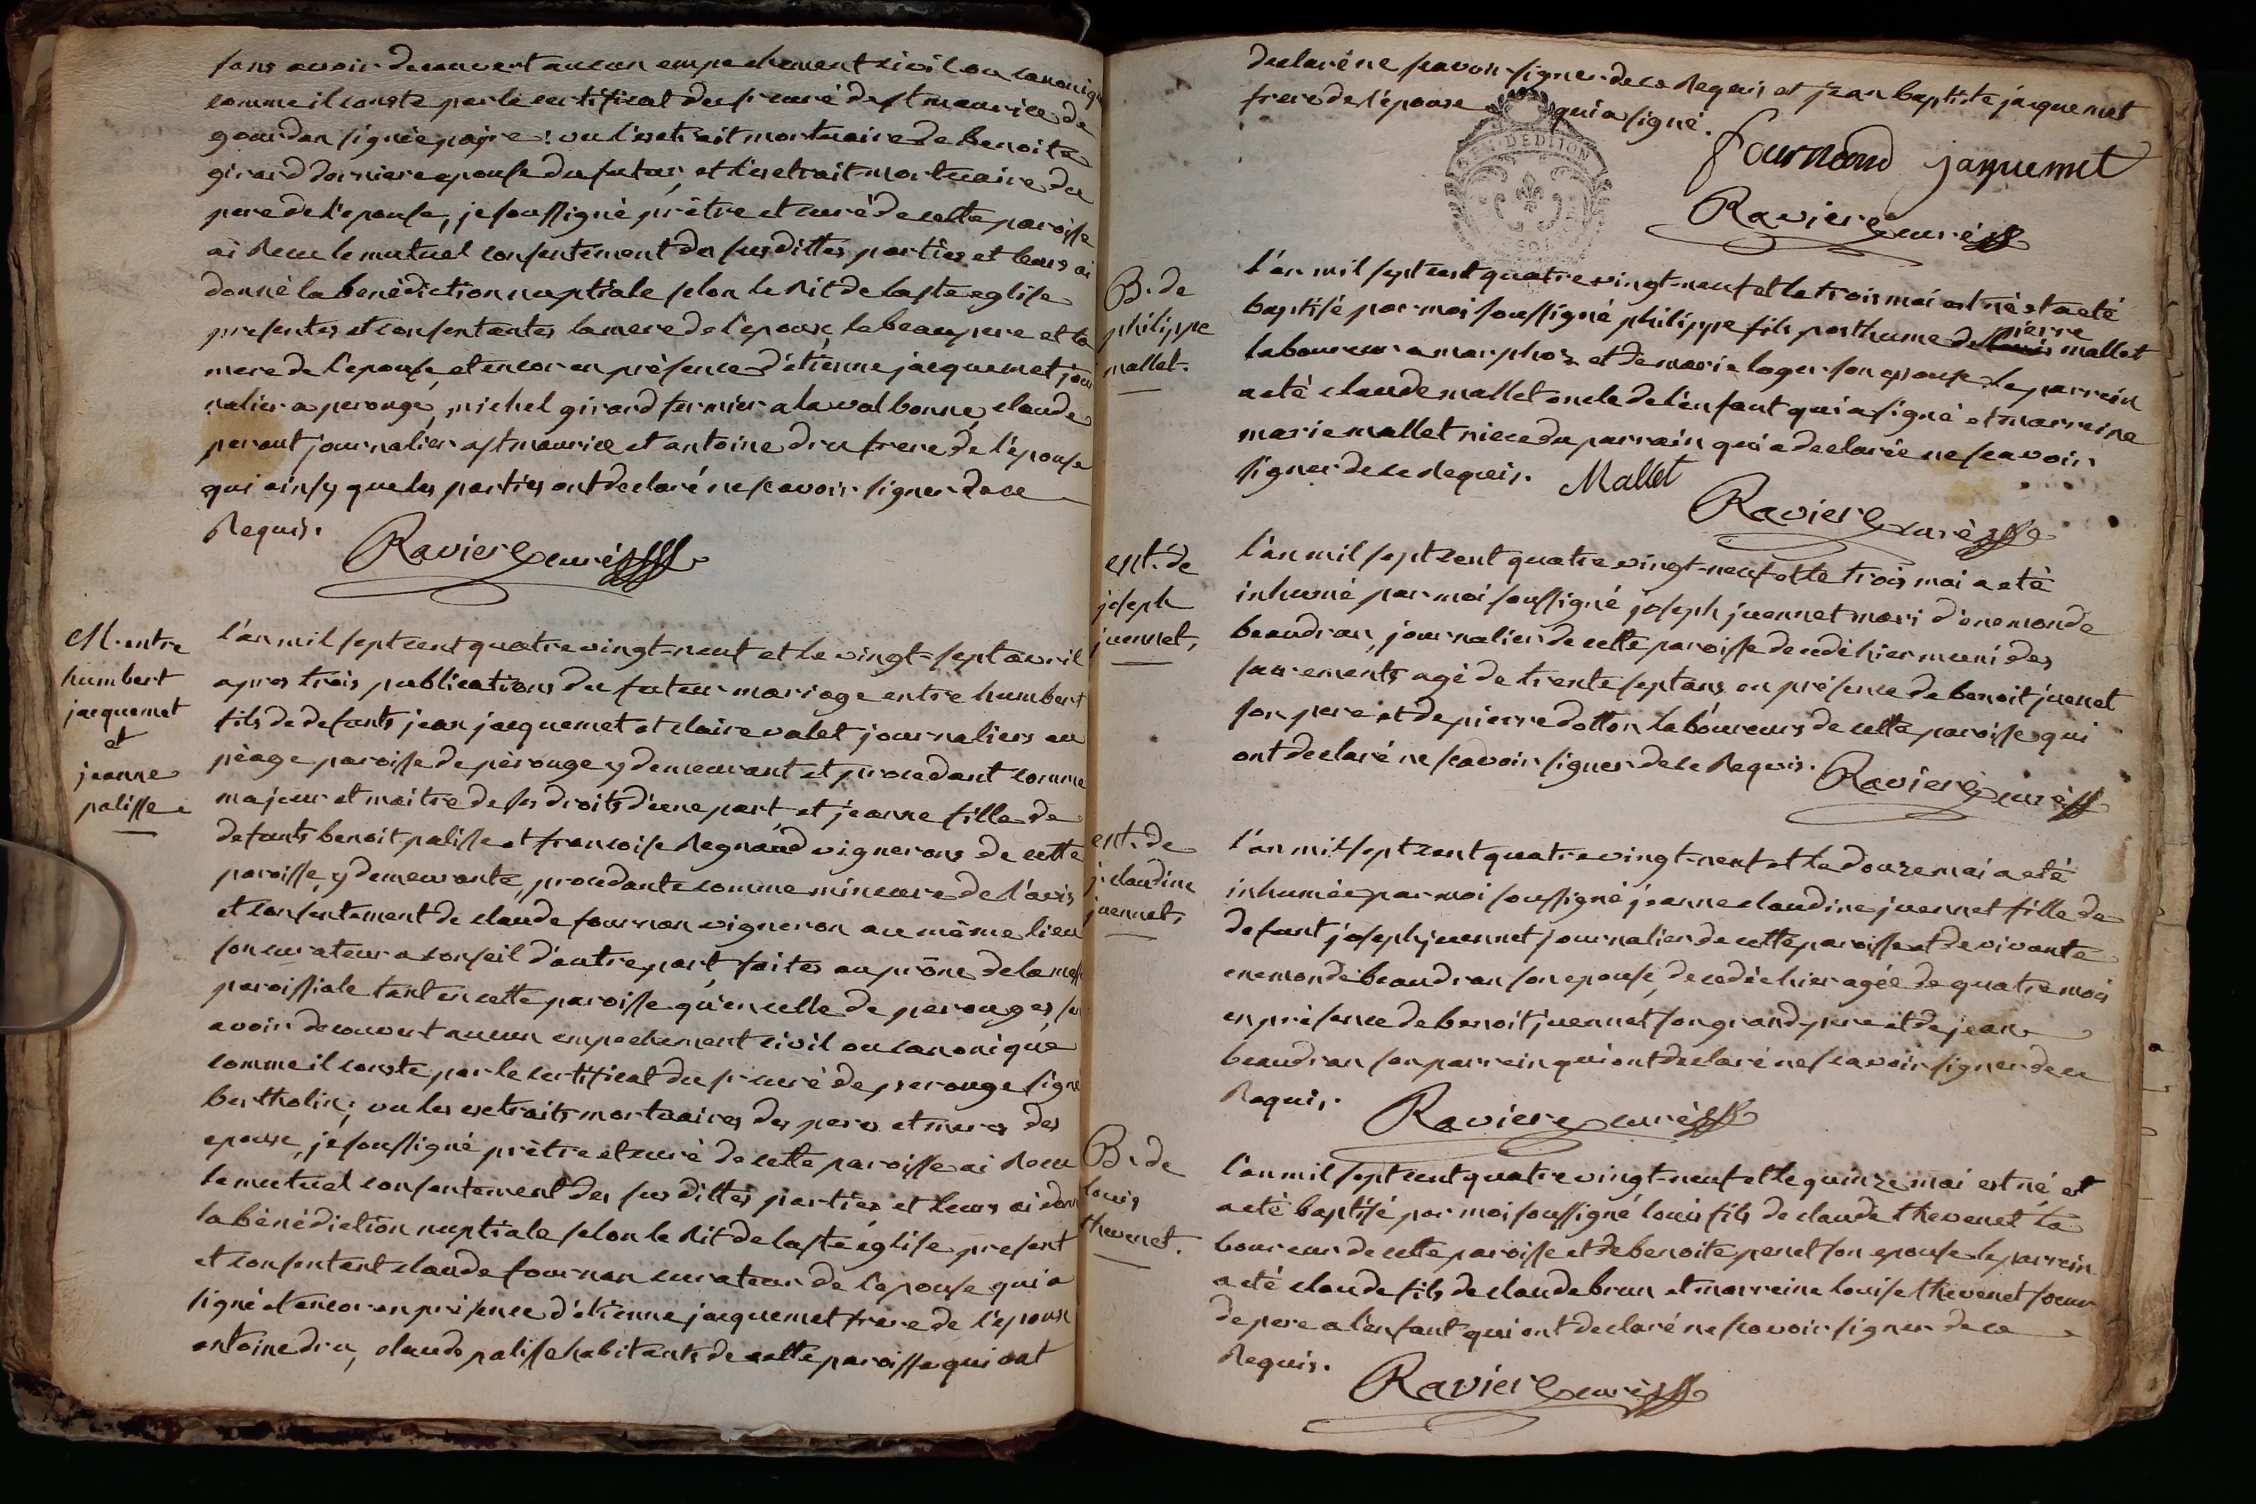 sans avoir decouvert aucun empechement civil ou canonique
comme il conste par le certificat du sr curé de st maurice de
gourdan signé pajre : vu l'extrait mortuaire de benoite
girard derniere epouse du futur, et l'extrait mortuaire du
pere de l'epouse, je soussigné prêtre et curé de cette paroisse
ai Recu le mutuel consentement des susdittes parties et leurs ai
donné la benédiction nuptiale selon le Rit de la ste eglise
presentes et consentantes la mere de l'epoux, le beaupere et la
mere de l'epouse, et encor en présence d'étienne jacquemet jour
nalier a perouge, michel girard fermier a la valbonne, claude
perout journalier a st maurice et antoine dru frere de l'épouse
qui ainsy que les parties ont declaré ne scavoir signer de ce
Requis.
Raviere curé
M. entre
humbert
jacquemet
et
jeanne
palisse
l'an mil sept cent quatre vingt-neuf et le vingt-sept avril
apres trois publications du futur mariage entre humbert
fils de defunts jean jacquemet et claire valet journaliers au
péage paroisse de pérouge y demeurant et procedant comme
majeur et maitre de ses droits d'une part, et jeanne fille de
defunts benoit palisse et francoise Regnaud vignerons de cette
paroisse, y demeurante, procedante comme mineure de l'avis
et consentement de claude fournon vigneron au même lieu
son curateur a conseil d'autre part, faites au prône de la messe
paroissiale tant en cette paroisse qu'en celle de perouges, sans
avoir decouvert aucun empechement civil ou canonique
comme il conste par le certificat du sr curé de perouge signé
bertholin; vu les extraits mortuaires des peres et meres des
epoux, je soussigné prêtre et curé de cette paroisse ai Recu
le mutuel consentement des susdittes parties et leurs ai donné
la bénédiction nuptiale selon le Rit de la ste église present
et consentant claude fournon curateur de l'epouse qui a
signé et encor en présence d'étienne jacquemet frere de l'epoux
antoine dru, claude palisse habitants de cette paroisse qui ont
declaré ne scavoir signer de ce Requis et jean baptiste jacquemet
frere de l'épouse qui a signé.
fournond jaquemet
Raviere curé
B. de
philippe
mallet.
l'an mil sept cent quatre vingt-neuf et le trois mai est né et a eté
baptisé par moi soussigné philippe fils posthume de pierre mallet
laboureur a marphoz et de marie loger son epouse. le parrein
a eté claude mallet oncle de l'enfant qui a signé et marreine
marie mallet niece du parrain qui a declarée ne scavoir
signer de ce Requis. Mallet
Raviere curé
ent. de
joseph
juennet,
l'an mil sept cent quatre vingt-neuf et le trois mai a eté
inhumé par moi soussigné joseph juennet mari d'enemonde
beaudran, journalier de cette paroisse decedé hier muni des
sacrements agé de trente sept ans en présence de benoit juenet
son pere et de pierre dotton laboureurs de cette paroisse qui
ont declaré ne scavoir signer de ce Requis. Raviere curé
ent. de
j. claudine
juennet,
l'an mil sept cent quatre vingt-neuf et le douze mai a eté
inhumée par moi soussigné jeanne claudine juennet fille de
defunt joseph juennet journalier de cette paroisse et de vivante
enemonde beaudran son epouse, decedée hier agée de quatre mois
en présence de benoit juennet son grand pere et de jean
beaudran son parrein qui ont declaré ne scavoir signer de ce
Requis.
Raviere curé
B. de
louis
thevenet.
l'an mil sept cent quatre vingt-neuf et le quinze mai est né, et
a eté baptisé par moi soussigné louis fils de claude thevenet la
boureur de cette paroisse et de benoite penet son epouse. le parrein
a eté claude fils de claude brun et marreine louise thevenet soeur
de pere a l'enfant qui ont declaré ne scavoir signer de ce
Requis.
Raviere curé